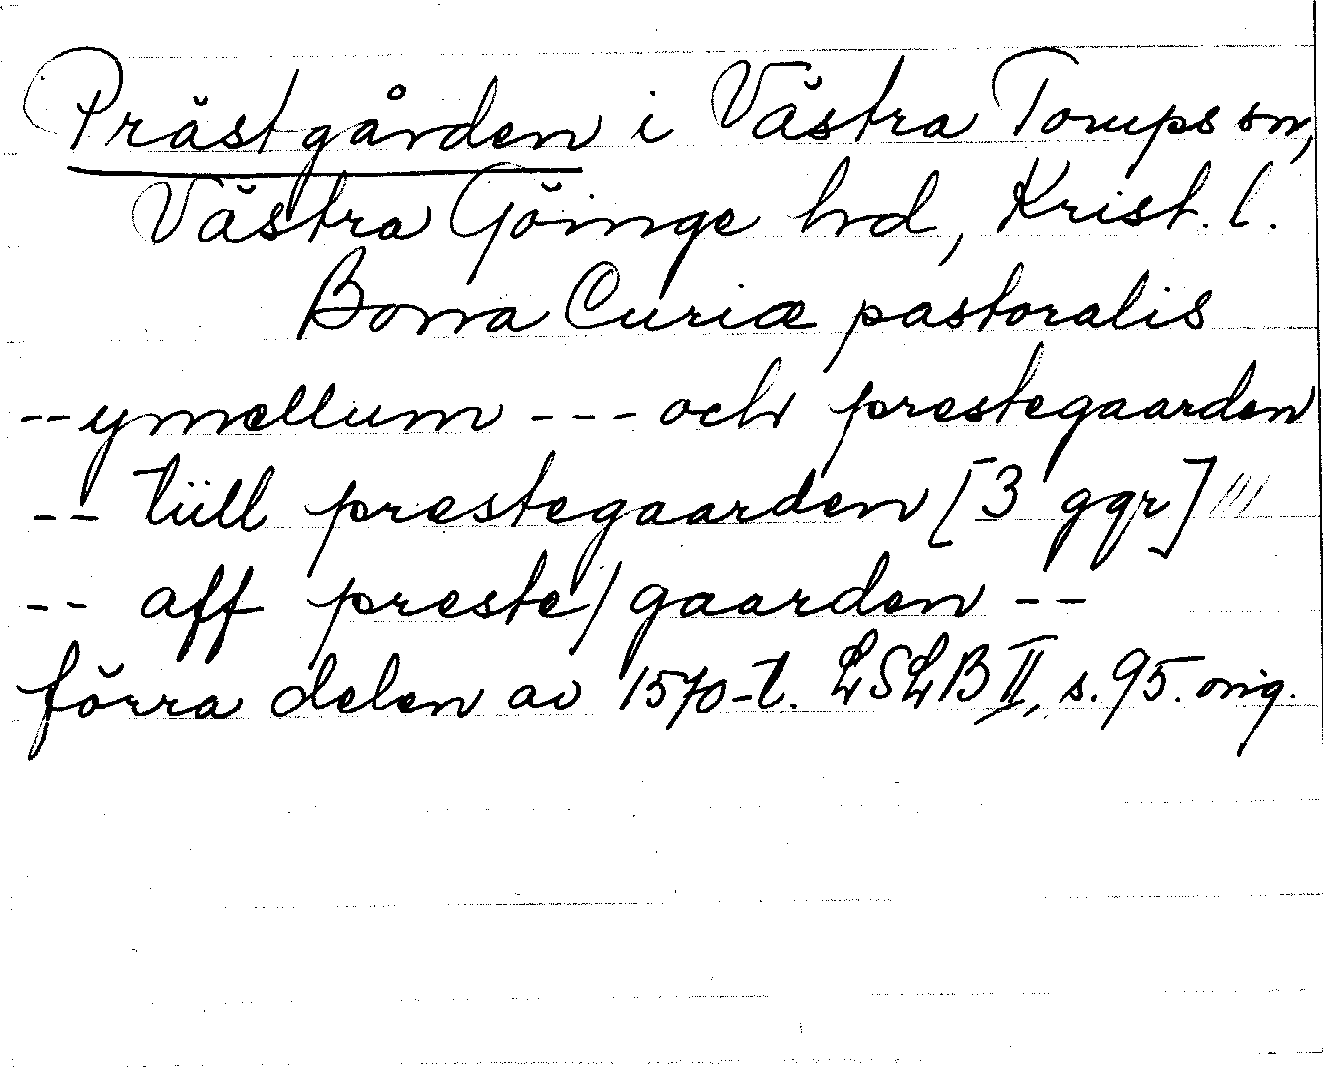 Prästgården i Västra Torups sn,
Västra Göinge hd, Krist. l.
Bona Curiæ pastoralis
--ymellum --- och prestegaarden
-- tüll prestegaarden [3 ggr]
-- aff preste/gaarden --
förra delen av 1570-t. LSLB II, s. 95. orig.